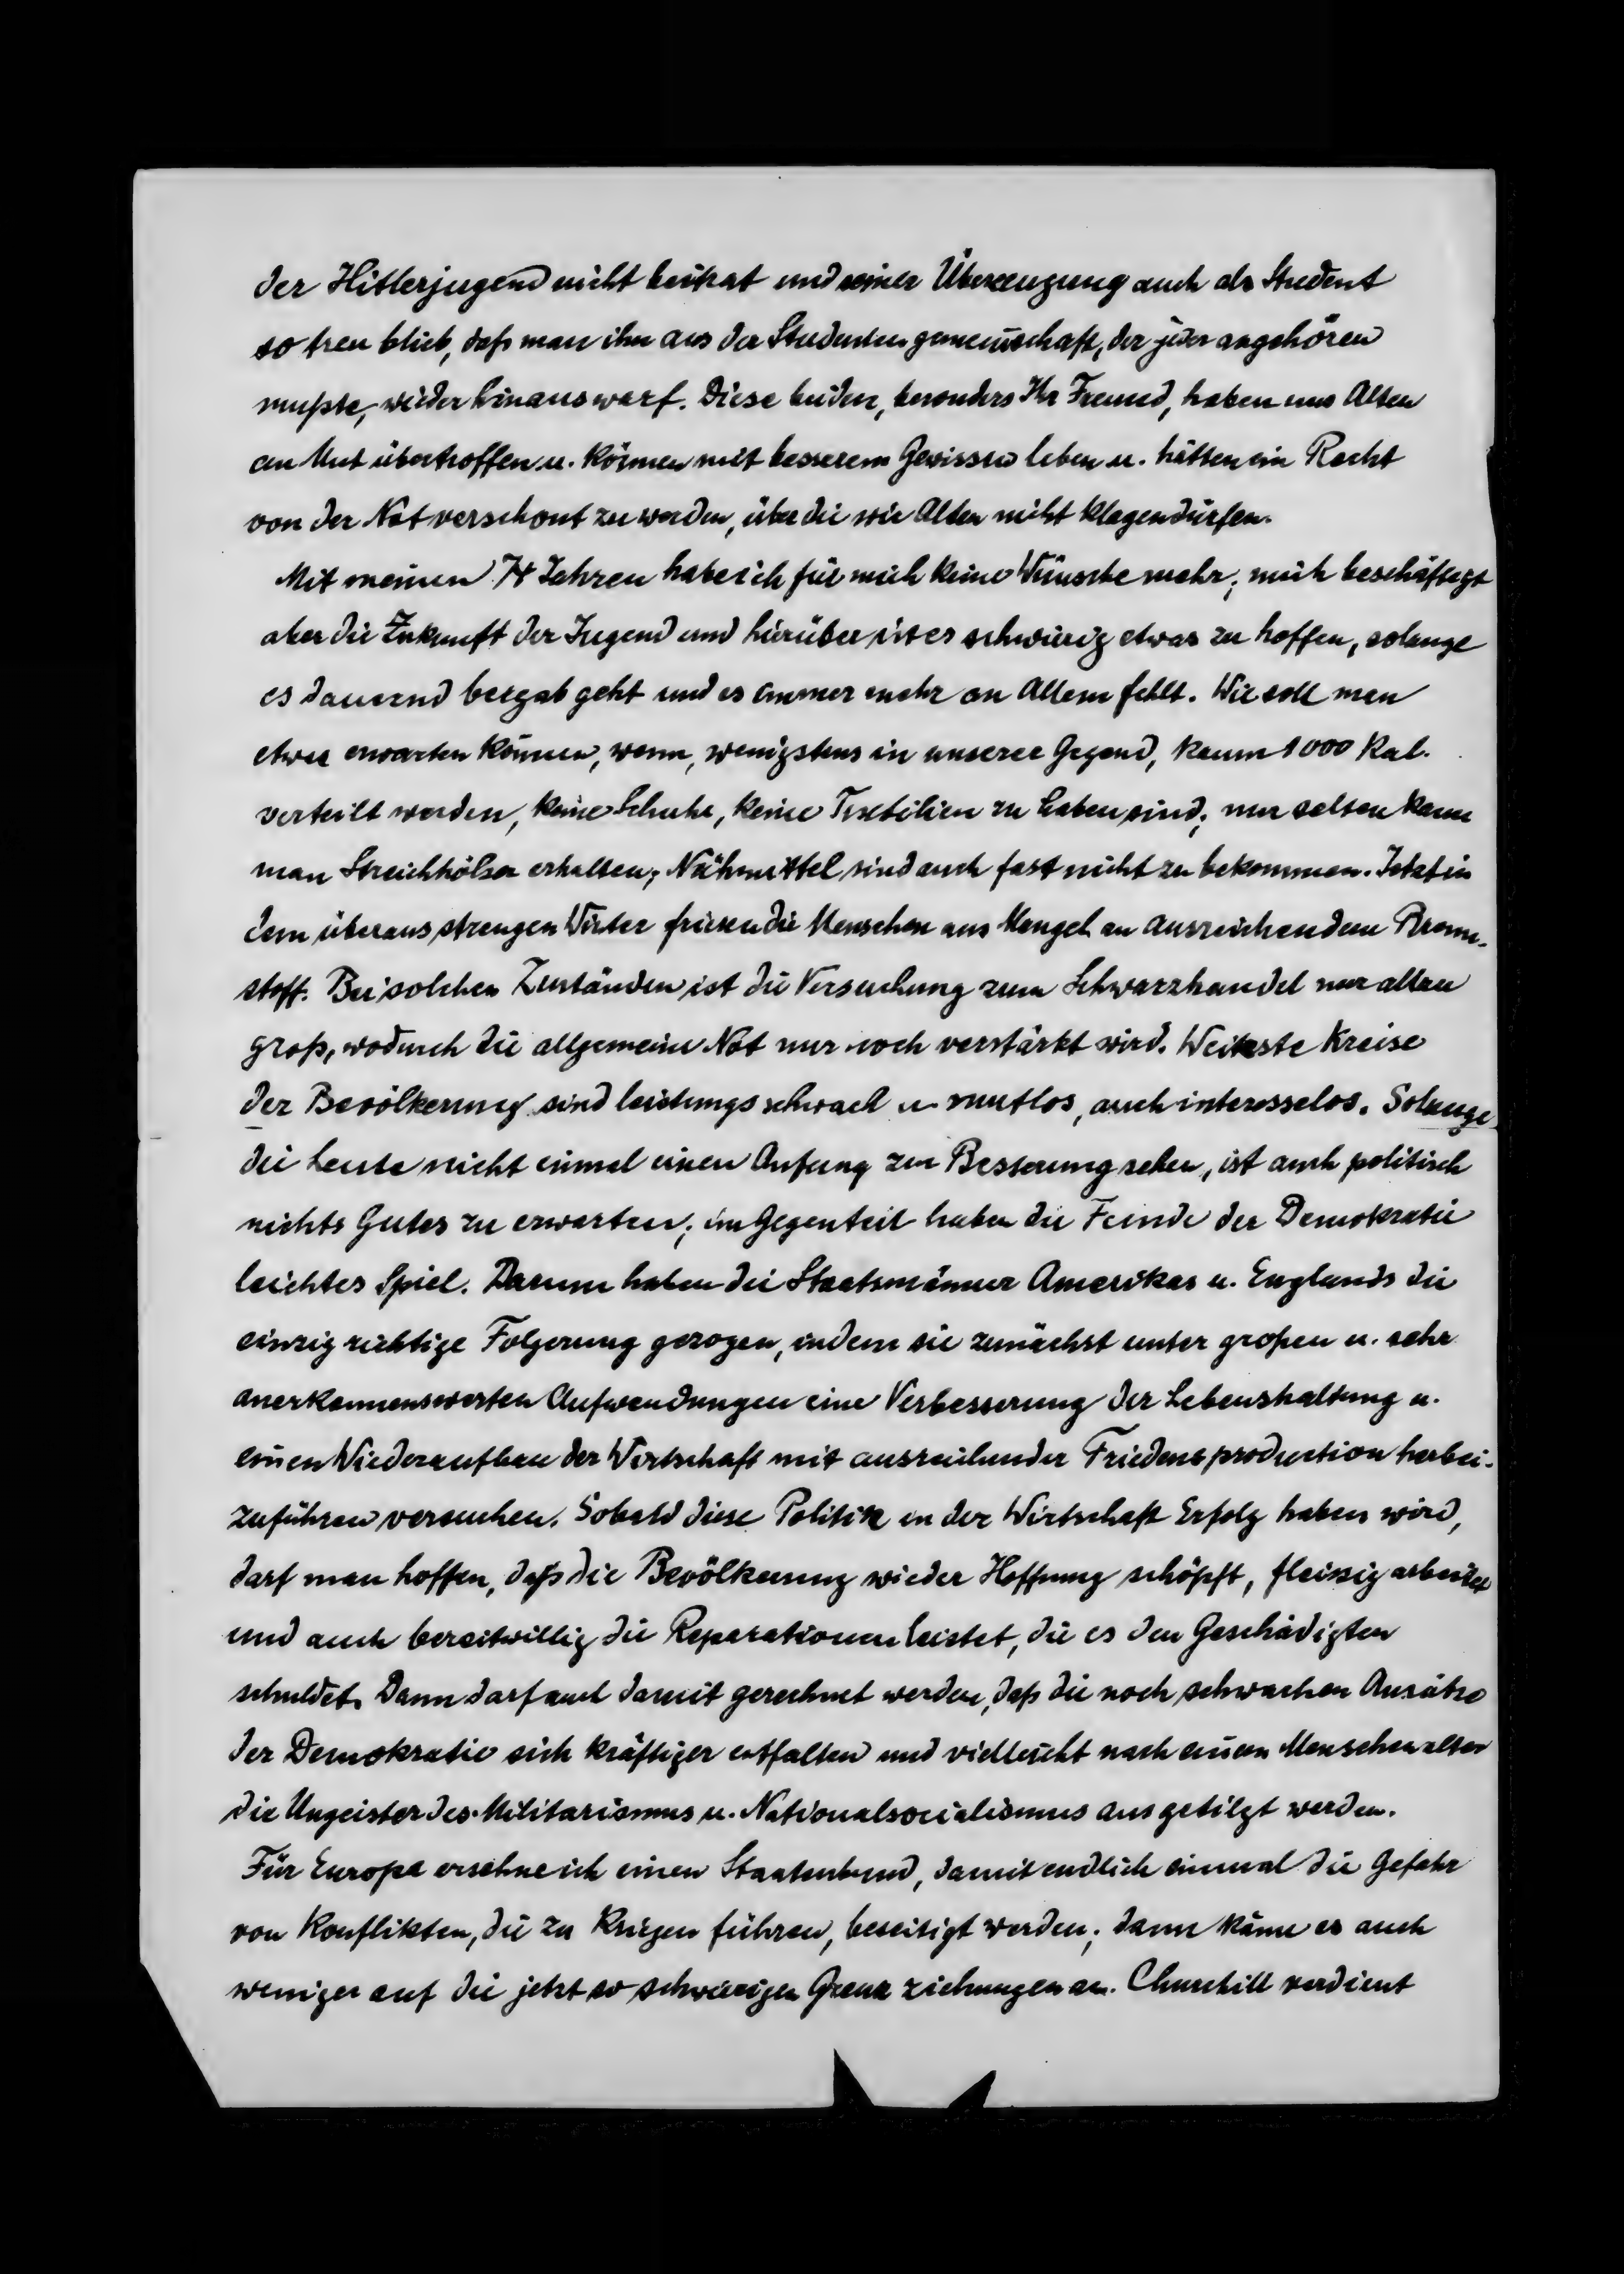 der Hitlerjugend nicht beitrat und seiner Überzeugung auch als Student
so treu blieb, daß man ihn aus der Studentengemeinschaft, der jeder angehören
mußte, wieder hinauswarf. Diese beiden, besonders Ihr Freund, haben uns Alten
an Mut übertroffen u. können mit besserem Gewissen leben u. hätten ein Recht
von der Not verschont zu werden, über die wir Alten nicht klagen dürfen.
Mit meinen 74 Jahren habe ich für mich keine Wünsche mehr; mich beschäftigt
aber die Zukunft der Jugend und hierüber ist es schwierig etwas zu hoffen, solange
es dauernd bergab geht und es immer mehr an Allem fehlt. Wie soll man
etwas erwarten können, wenn, wenigstens in unserer Gegend, kaum 1000 Kal.
verteilt werden, keine Schuhe, keine Textilien zu haben sind; nur selten kann
man Streichhölzer erhalten; Nähmittel sind auch fast nicht zu bekommen. Jetzt in
dem überaus strengen Winter frieren die Menschen aus Mangel an ausreichendem Brenn-
stoff. Bei solchen Zuständen ist die Versuchung zum Schwarzhandel nur allzu
groß, wodurch die allgemeine Not nur noch verstärkt wird. Weiteste Kreise
der Bevölkerung sind leistungsschwach u. mutlos, auch interesselos. Solange
die Leute nicht einmal einen Anfang zur Besserung sehen, ist auch politisch
nichts Gutes zu erwarten; im Gegenteil haben die Feinde der Demokratie
leichtes Spiel. Darum haben die Staatsmänner Amerikas u. Englands die
einzig richtige Folgerung gezogen, indem sie zunächst unter großen u. sehr
anerkennenswerten Aufwendungen eine Verbesserung der Lebenshaltung u.
einen Wiederaufbau der Wirtschaft mit ausreichender Friedensproduction herbei-
zuführen versuchen. Sobald diese Politik in der Wirtschaft Erfolg haben wird,
darf man hoffen, daß die Bevölkerung wieder Hoffnung schöpft, fleissig arbeitet
und auch bereitwillig die Reparationen leistet, die es den Geschädigten
schuldet. Dann darf auch damit gerechnet werden, daß die noch schwachen Ansätze
der Demokratie sich kräftiger entfalten und vielleicht nach einem Menschenalter
die Ungeister des Militarismus u. Nationalsocialismus ausgetilgt werden.
Für Europa ersehne ich einen Staatenbund, damit endlich einmal die Gefahr
von Konflikten, die zu Kriegen führen, beseitigt werden; dann käme es auch
weniger auf die jetzt so schwierigen Grenzziehungen an. Churchill verdient